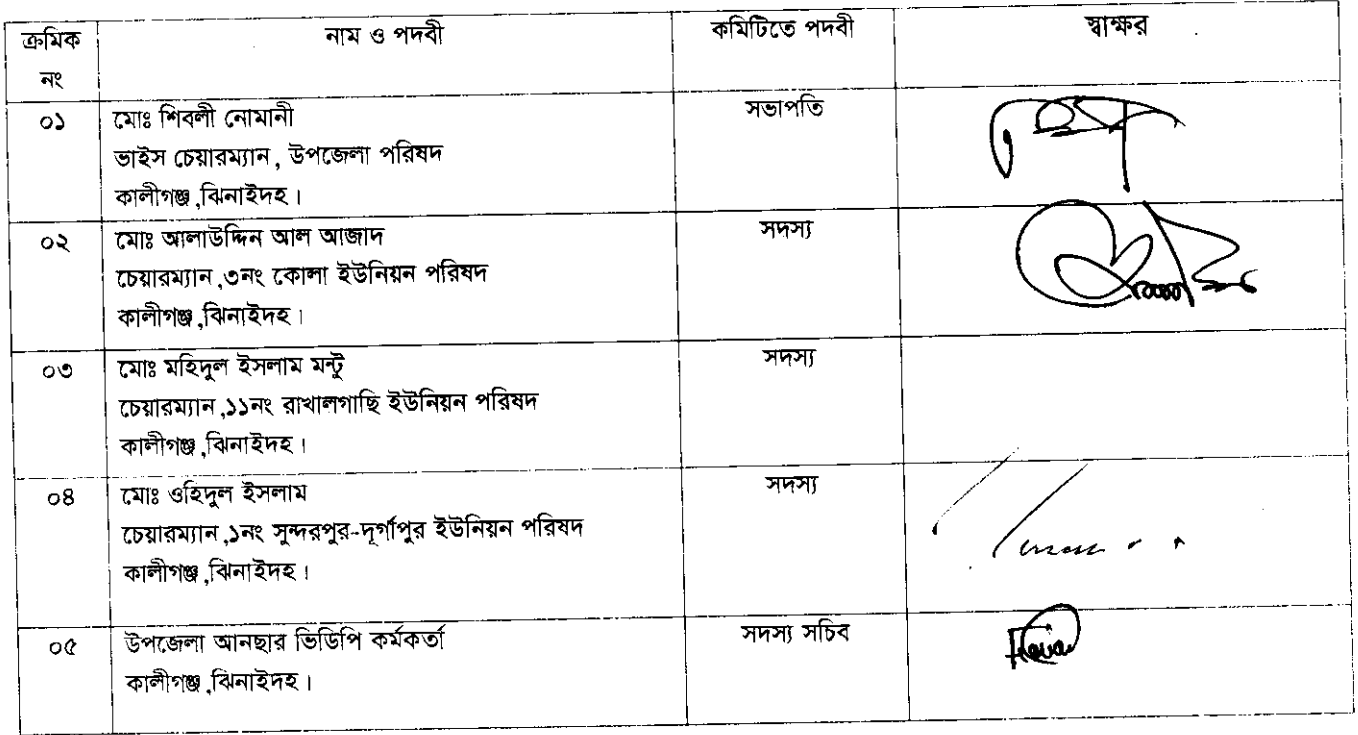 ক্রমিক নং | নাম ও পদবী | কমিটিতে পদবী | স্বাক্ষর
০১ | মোঃ শিবলী নোমানী | সভাপতি
ভাইস চেয়ারম্যান, উপজেলা পরিষদ
কালীগঞ্জ,ঝিনাইদহ।
০২ | মোঃ আলাউদ্দিন আল আজাদ | সদস্য
চেয়ারম্যান,৩নং কোলা ইউনিয়ন পরিষদ
কালীগঞ্জ,ঝিনাইদহ।
০৩ | মোঃ মহিদুল ইসলাম মন্টু | সদস্য
চেয়ারম্যান,১১নং রাখালগাছি ইউনিয়ন পরিষদ
কালীগঞ্জ,ঝিনাইদহ।
০৪ | মোঃ ওহিদুল ইসলাম | সদস্য
চেয়ারম্যান,১নং সুন্দরপুর-দূর্গাপুর ইউনিয়ন পরিষদ
কালীগঞ্জ,ঝিনাইদহ।
০৫ | উপজেলা আনছার ভিডিপি কর্মকর্তা | সদস্য সচিব
কালীগঞ্জ,ঝিনাইদহ।